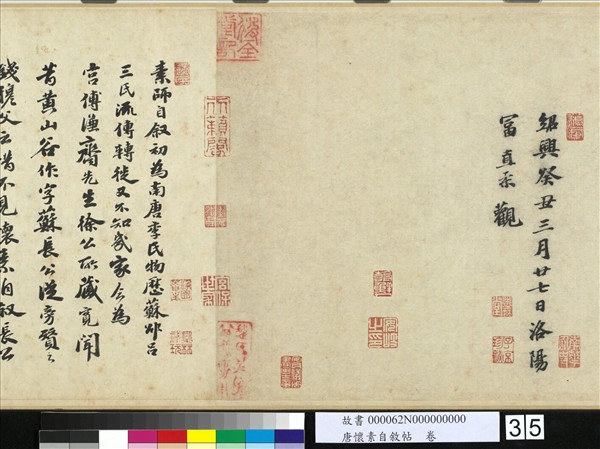 紹興癸丑三月廿七日洛陽
富直柔觀
素師自叙初為南唐李氏物歷蘇邵呂
三氏流傳轉徙又不知幾家今為
宮傅謙齋先生徐公所藏寬聞
昔黃山谷作字蘇長公從旁贊之
錢穆父云惜不見懷素自叙長公
故書 000062N000000000
唐懷素自敘帖 卷
35